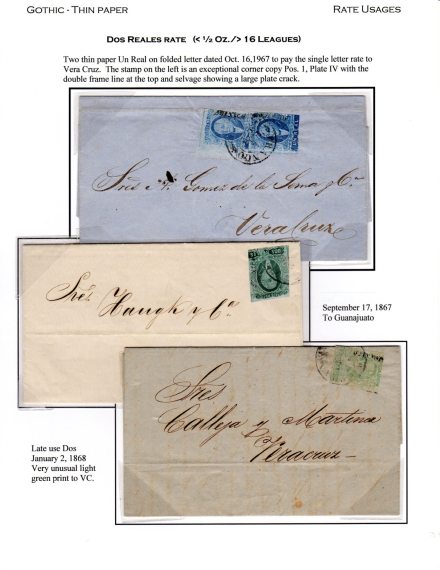 GOTHIC · THIN PAPER
RATE USAGES
DOS REALES RATE (< ½ OZ./> 16 LEAGUES)
Two thin paper Un Real on folded letter dated Oct. 16,1967 to pay the single letter rate to
Vera Cruz. The stamp on the left is an exceptional corner copy Pos. 1, Plate IV with the
double frame line at the top and selvage showing a large plate crack.
FRANCO
Sres Gomez de la Serna y Ca
Vera Cruz
Sres
Haugk y Ca
September 17, 1867
To Guanajuato
Sres
Calleja y Martinez
Veracruz
Late use Dos
January 2, 1868
Very unusual light
green print to VC.